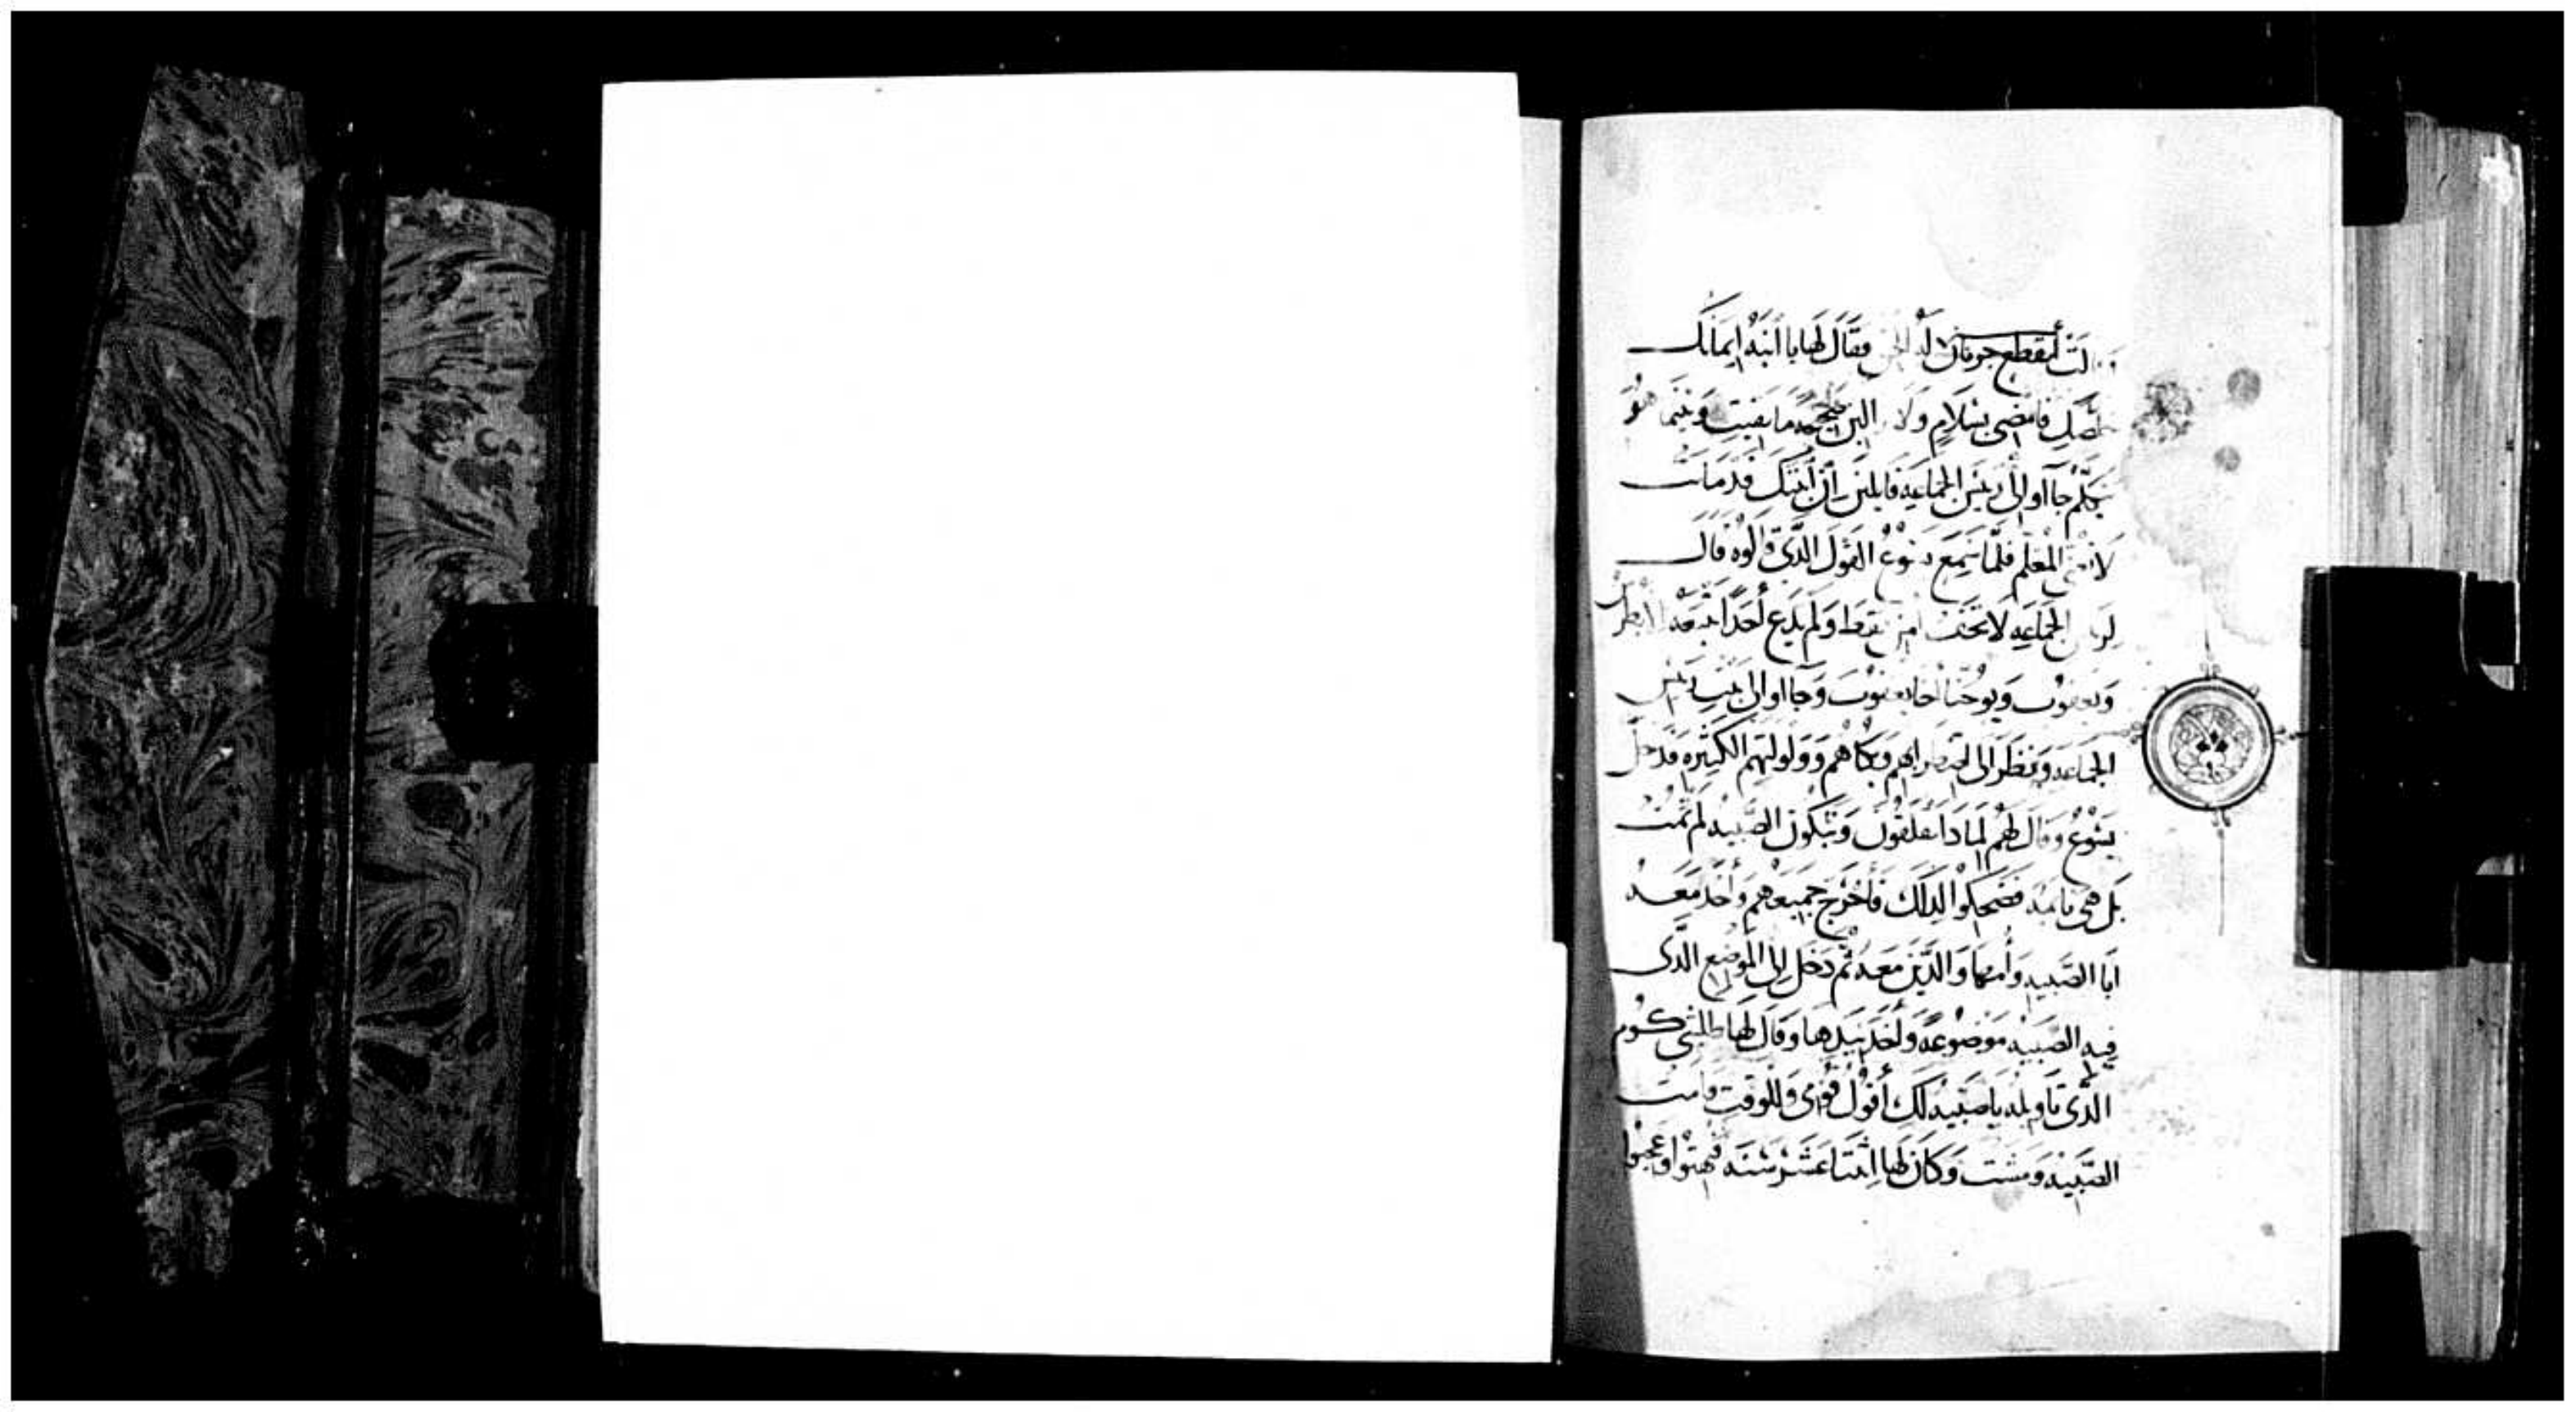 فقال لها يا ابنه ايمانك
فامضى بسلام وبينما هو
يتكلم جااوا الى رئيس الجماعه قايلين ان ابنتك قد ماتت
المعلم فلما سمع يسوع القول الدى قالوه قال
الجماعه لا تخف امن فقط ولم يدع أحدًا
ويعقوب ويوحنا اخا يعقوب وجااوا الى بيت رئيس
الجماعه ونظر الى اضطرابهم وبكاهم وولولتهم الكثيره فدخل
يسوع وقال لهم لمادا تقلقون وتبكون الصبيه لم تمت
بل هى نايمه فضحكوا لدلك فأخرج جميعهم وأخد معه
ابا الصبيه وأمها والدين معه ثم دخل الى الموضع الدى
فيه الصبيه موضوعه وأخد بيدها وقال لها طليثى كوم
الدى تاويله يا صبيه لك أقول قومى وللوقت قامت
الصبيه ومشت وكان لها اثنتا عشر سنه فبهتوا وعجبوا